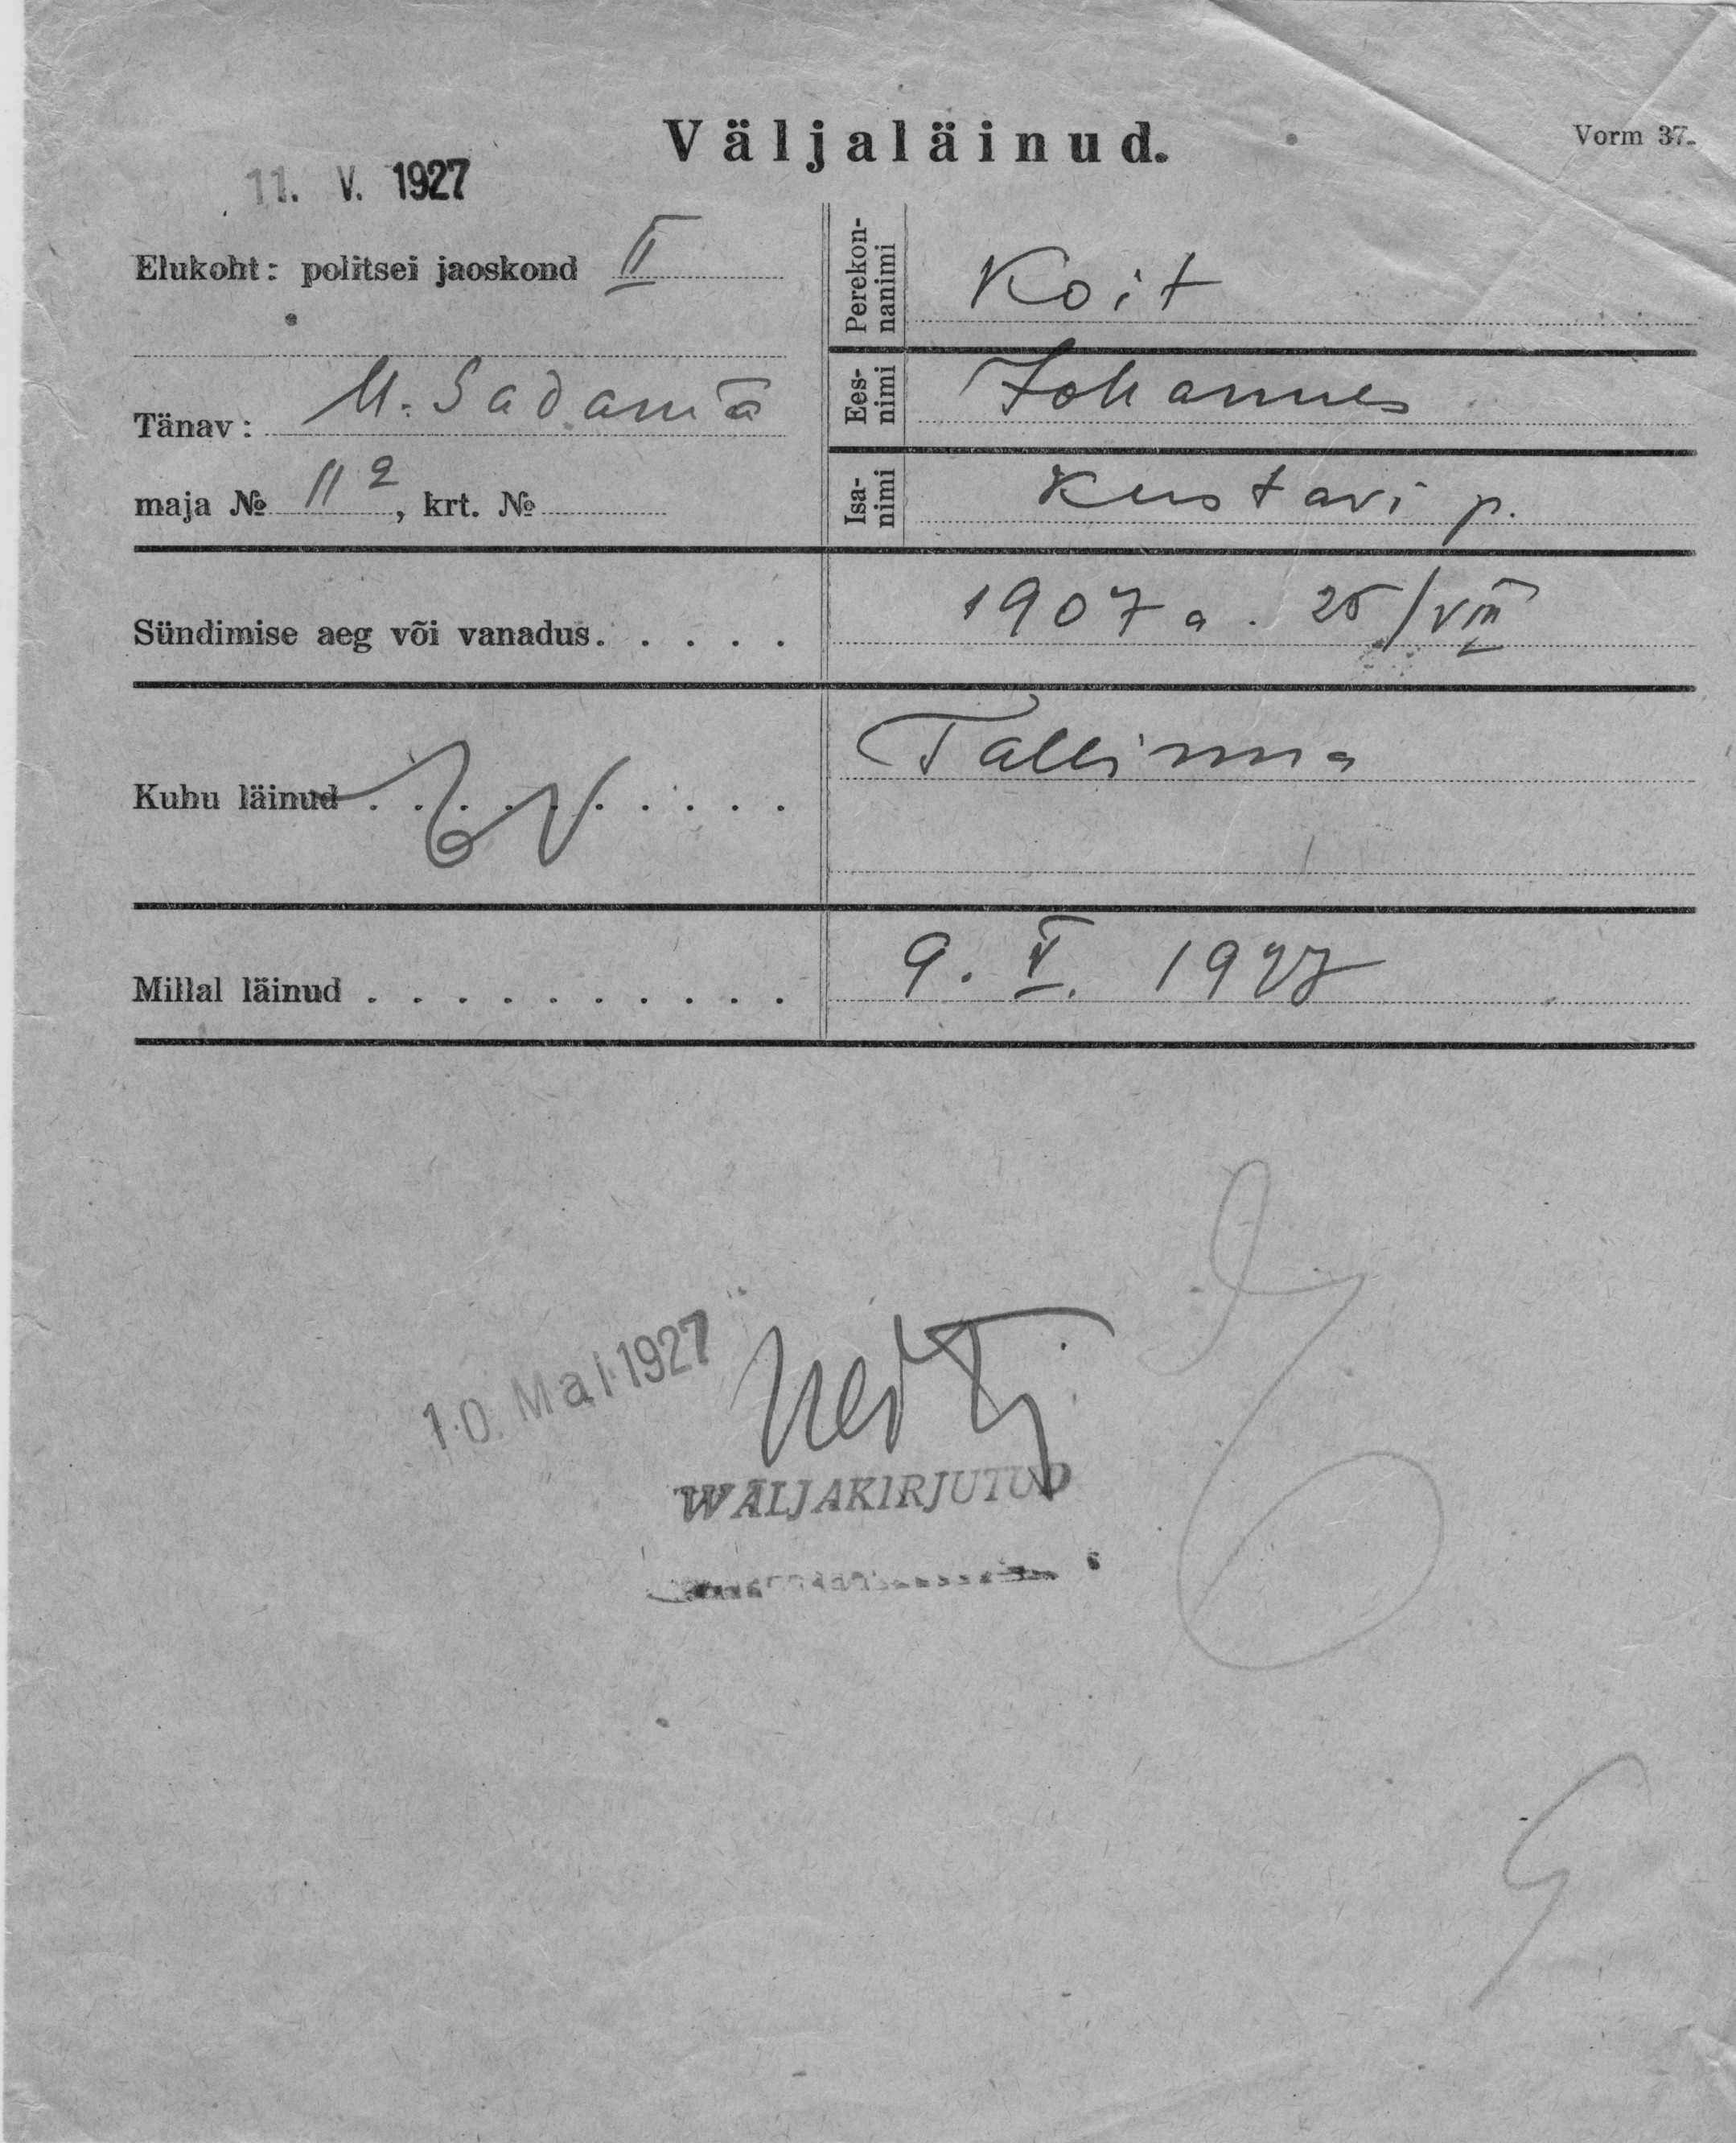 Väljaläinud.
Vorm 37.
11. V. 1927
Elukoht: politsei jaoskond II
Tänav: U. Sadama
maja № 112, krt. №
Perekon-
nanimi
Koit
Ees-
nimi
Johannes
Isa-
nimi
Kustavi p.
Sündimise aeg või vanadus. . . . . 1907 a. 25/VIII
Kuhu läinud . . . . . . . . . . Tallinna
Millal läinud . . . . . . . . . . 9. V. 1927
10. Mai 1927
WÄLJAKIRJUTUD